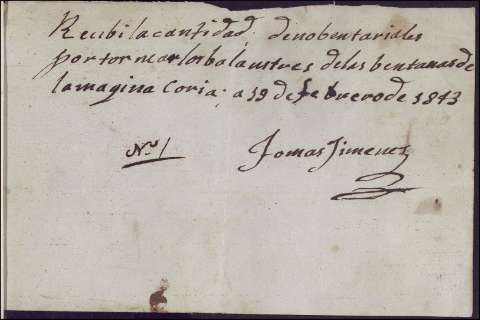 Recibi la cantidad de nobenta riales
por tornear los balaustres de las bentanas de
la magina Coria: a 19 de febrero de 1843
Nº 1
Tomas Jimenez